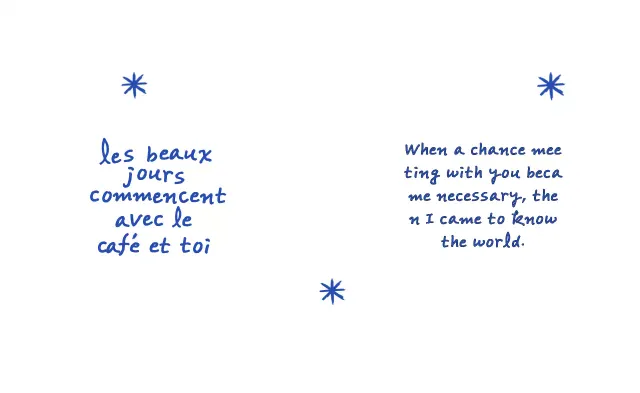 les beaux
jours
commencent
avec le
café et toi
When a chance mee
ting with you beca
me necessary, the
n I came to know
the world.